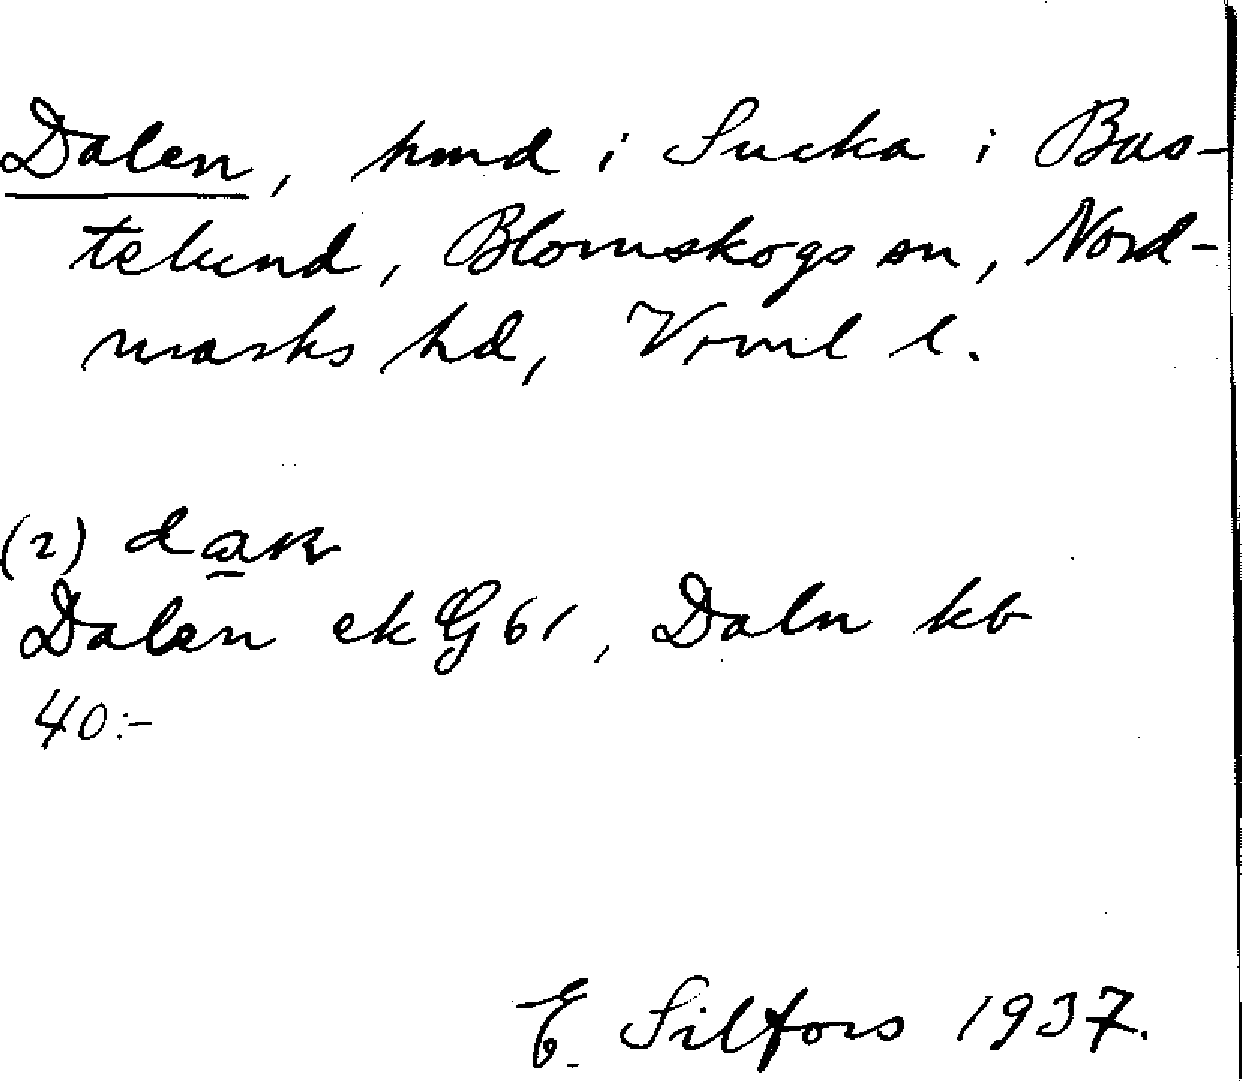 Dalen, hmd i Sucka i Bas-
telund, Blomskogs sn, Nord-
marks hd, Vrml l.
(2) dan
Dalen ek G 61, Daln kb
40:-
E. Silfors 1937.